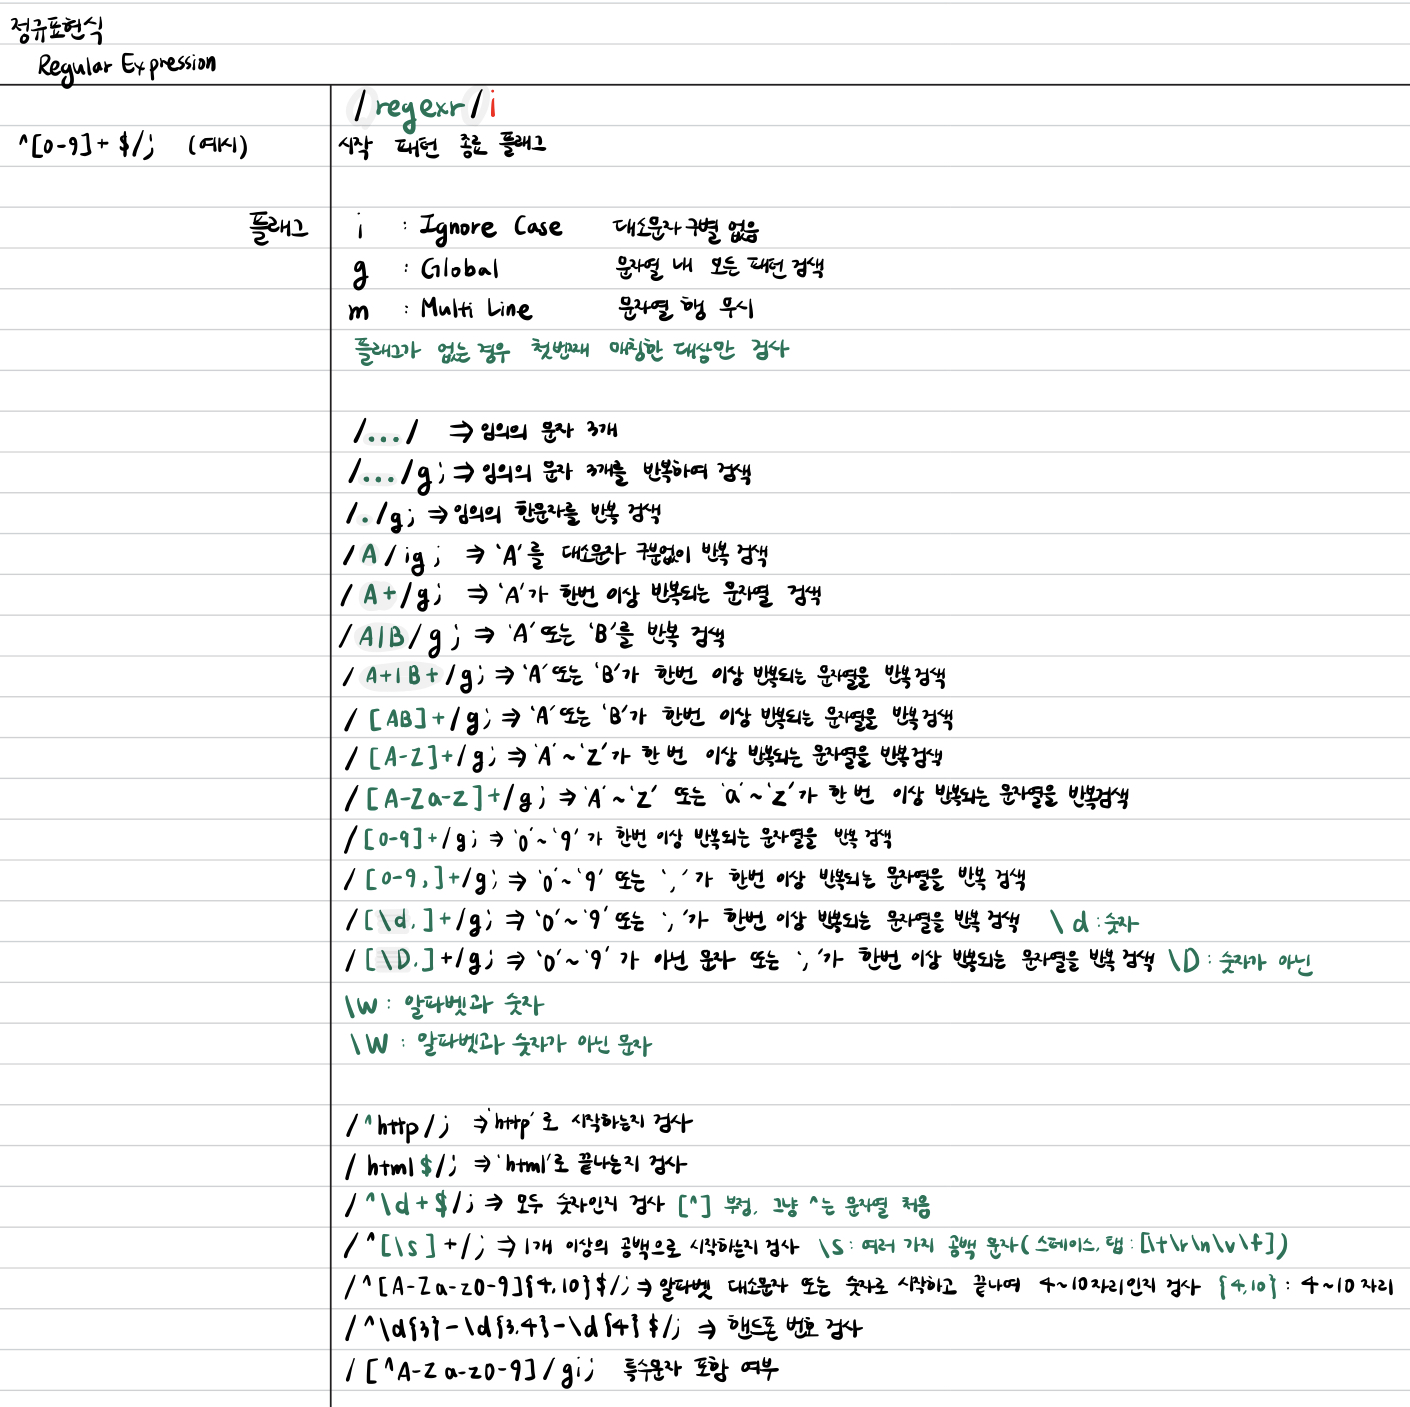 정규표현식
Regular Expression
/regexr/i
^[0-9]+$/; (예시)
시작 패턴 종료 플래그
플래그 i : Ignore Case 대소문자 구별 없음
g : Global 문자열 내 모든 패턴 검색
m : Multi Line 문자열 행 무시
플래그가 없는 경우 첫번째 매칭한 대상만 검사
/.../ ⇒ 임의의 문자 3개
/.../g; ⇒ 임의의 문자 3개를 반복하여 검색
/./g; ⇒ 임의의 한문자를 반복 검색
/A/ig; ⇒ 'A'를 대소문자 구분없이 반복 검색
/A+/g; ⇒ 'A'가 한번 이상 반복되는 문자열 검색
/A|B/g; ⇒ 'A' 또는 'B'를 반복 검색
/A+|B+/g; ⇒ 'A' 또는 'B'가 한번 이상 반복되는 문자열을 반복 검색
/[AB]+/g; ⇒ 'A' 또는 'B'가 한번 이상 반복되는 문자열을 반복 검색
/[A-Z]+/g; ⇒ 'A' ~ 'Z'가 한 번 이상 반복되는 문자열을 반복 검색
/[A-Za-z]+/g; ⇒ 'A' ~ 'Z' 또는 'a' ~ 'z'가 한 번 이상 반복되는 문자열을 반복검색
/[0-9]+/g; ⇒ '0' ~ '9'가 한번 이상 반복되는 문자열을 반복 검색
/[0-9,]+/g; ⇒ '0' ~ '9' 또는 ','가 한번 이상 반복되는 문자열을 반복 검색
/[\d,]+/g; ⇒ '0' ~ '9' 또는 ','가 한번 이상 반복되는 문자열을 반복 검색 \d : 숫자
/[\D,]+/g; ⇒ '0' ~ '9'가 아닌 문자 또는 ','가 한번 이상 반복되는 문자열을 반복 검색 \D : 숫자가 아닌
\w : 알파벳과 숫자
\W : 알파벳과 숫자가 아닌 문자
/^http/; ⇒ 'http'로 시작하는지 검사
/html$/; ⇒ 'html'로 끝나는지 검사
/^\d+$/; ⇒ 모두 숫자인지 검사 [^] 부정, 그냥 ^는 문자열 처음
/^[\s]+/; ⇒ 1개 이상의 공백으로 시작하는지 검사 \S : 여러 가지 공백 문자 (스페이스, 탭 : [\t\r\n\v\f])
/^[A-Za-z0-9]{4,10}$/; ⇒ 알파벳 대소문자 또는 숫자로 시작하고 끝나며 4~10자리인지 검사 {4,10} : 4~10 자리
/^\d{3}-\d{3,4}-\d{4}$/; ⇒ 핸드폰 번호 검사
/[^A-Za-z0-9]/gi; 특수문자 포함 여부